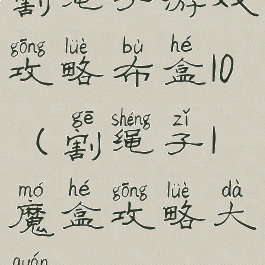 gōng lüè bù hé
攻略布盒10
gē shéng zǐ
(割绳子1
mó hé gōng lüè dà
魔盒攻略大
quán